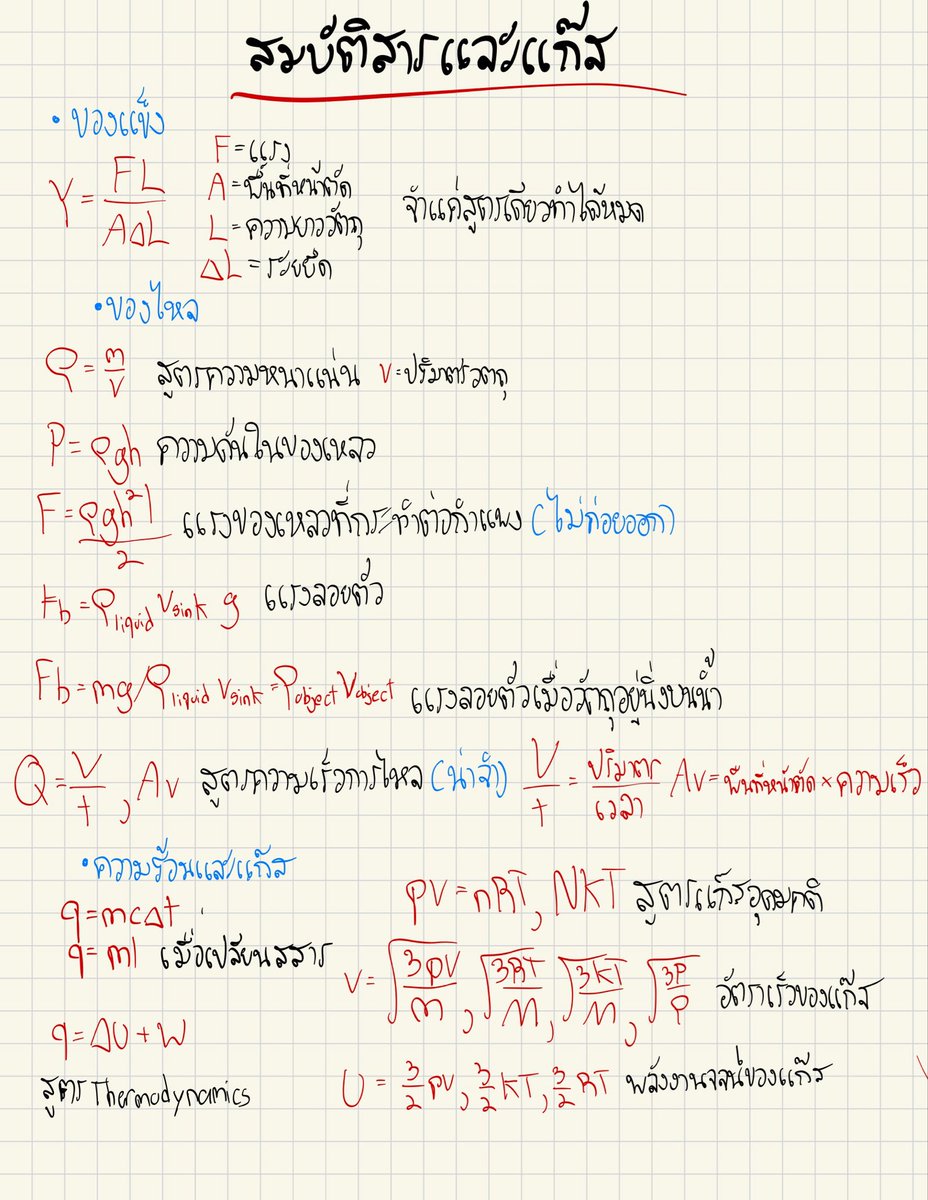 สมบัติสารและแก๊ส
• ของแข็ง
Y = FL/AΔL
F = แรง
A = พื้นที่หน้าตัด
L = ความยาววัตถุ
ΔL = ระยะยืด
จำแค่สูตรเดียวทำได้หมด
• ของไหล
ρ = m/v สูตรความหนาแน่น v = ปริมาตรวัตถุ
P = ρgh ความดันในของเหลว
F = ρgh²l/2 แรงของเหลวที่กระทำต่อกำแพง (ไม่ค่อยออก)
Fb = ρliquid Vsink g แรงลอยตัว
Fb = mg / ρliquid Vsink = ρobject Vobject แรงลอยตัวเมื่อวัตถุอยู่นิ่งบนน้ำ
Q = V/t, Av สูตรความเร็วการไหล (น่าจำ) V/t = ปริมาตร/เวลา Av = พื้นที่หน้าตัด × ความเร็ว
• ความร้อนและแก๊ส
q = mcΔt
q = ml เมื่อเปลี่ยนสสาร
q = ΔU + W
สูตร Thermodynamics
PV = nRT, NKT สูตรแก๊สอุดมคติ
V = √3PV/m, √3RT/M, √3KT/M, √3P/ρ อัตราเร็วของแก๊ส
U = 3/2 PV, 3/2 KT, 3/2 RT พลังงานจลน์ของแก๊ส